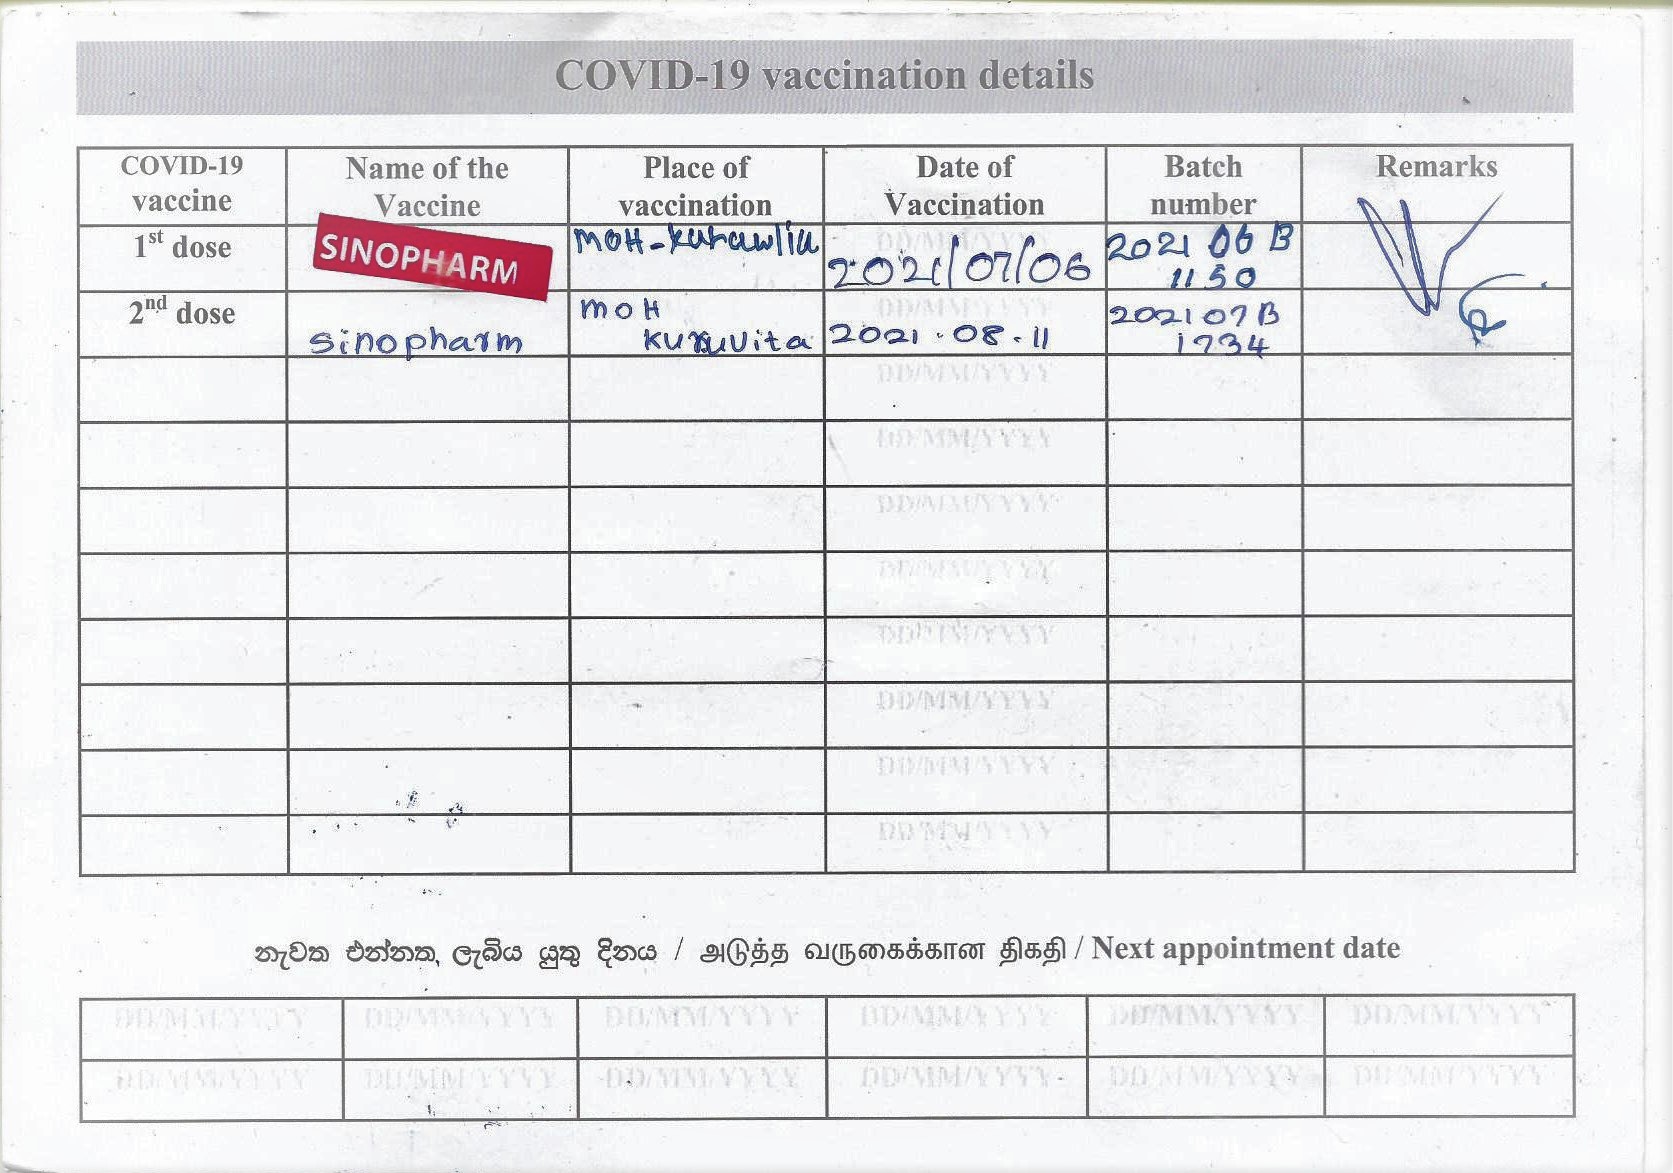 COVID-19 vaccination details
COVID-19 vaccine
Name of the Vaccine
Place of vaccination
Date of Vaccination
Batch number
Remarks
1st dose
SINOPHARM
MOH-
2021/07/06
2021 06 B
1150
2nd dose
sinopharm
MOH
kuruvita
2021.08.11
202107B
1734
DD/MM/YYYY
DD/MM/YYYY
DD/MM/YYYY
DD/MM/YYYY
DD/MM/YYYY
DD/MM/YYYY
DD/MM/YYYY
DD/MM/YYYY
DD/MM/YYYY
DD/MM/YYYY
නැවත එන්නත ලැබිය යුතු දිනය / அடுத்த வருகைக்கான திகதி / Next appointment date
DD/MM/YYYY DD/MM/YYYY DD/MM/YYYY DD/MM/YYYY DD/MM/YYYY DD/MM/YYYY
DD/MM/YYYY DD/MM/YYYY DD/MM/YYYY DD/MM/YYYY DD/MM/YYYY DD/MM/YYYY